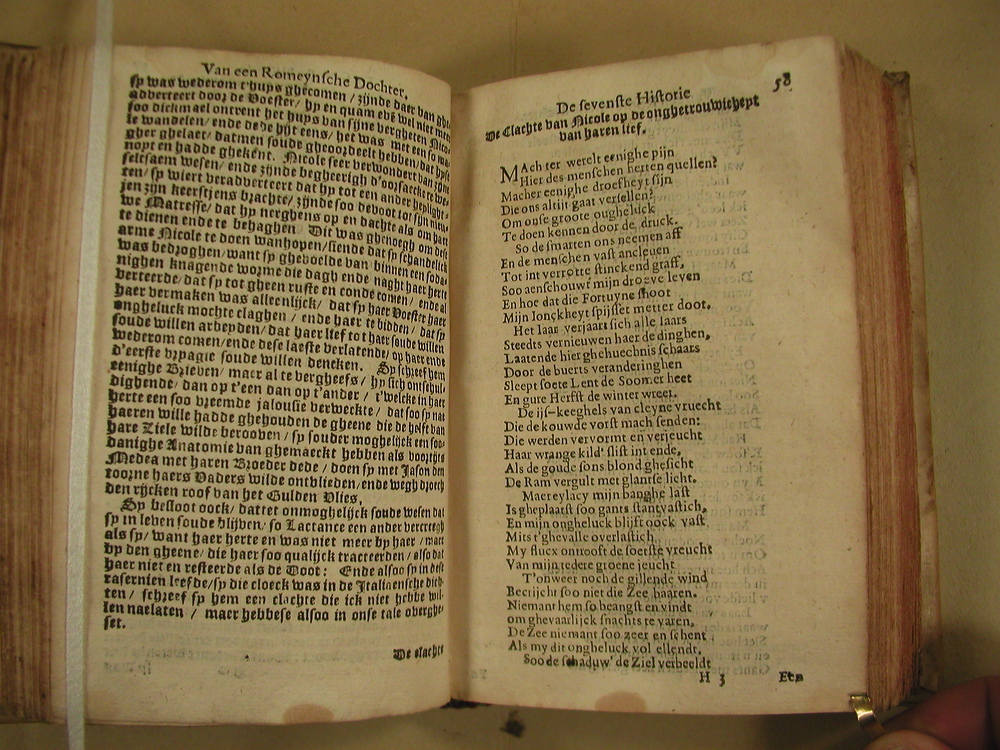 Van een Romeynsche Dochter.
sy was wederom t'huys ghecomen / zijnde daer van
adverteert door de Voester / hy en quam evē wel niet
soo dickmael ontrent het huys van sijne vergheten
te wandelen / ende dede hijt eens / het was met een so
gher ghelaet / datmen soude gheoordeelt hebben / dat hyse
noyt en hadde ghekent. Nicole seer verwondert van zijn
seltsaem wesen / ende zijnde begheerigh d'oorsaecke te
ten / sy wiert veradverteert dat hy tot een ander
jen zijn keerssens brachte / zijnde soo devoot tot sijn
we Matresse / dat hy nerghens op en dachte als om haer
te dienen ende te behaghen. Dit was ghenoegh om dese
arme Nicole te doen wanhopen / siende dat sy schandelick
was bedzoghen / want sy ghevoelde van binnen een
nighen knagende worme die dagh ende naght haer herte
verteerde / dat sy tot gheen ruste en conde comen / ende al
haer vermaken was alleenlijck / dat sy haer Voester haer
ongheluck mochte claghen / ende haer te bidden / dat sy
soude willen arbeyden / dat haer lief tot haer soude willen
wederom comen / ende dese laetste verlatende / op haer ende
d'eerste vryagie soude willen dencken. Sy schreef hem
eenighe Brieven / maer al te vergheefs / hy sich ontschul-
dighende / dan op t'een dan op t'ander / t'welcke in haer
herte een soo vreemde jalousie verweckte / dat soo sy nat
haeren wille hadde ghehouden de gheene die de helft van
hare Ziele wilde berooven / sy souder moghelijck een soo-
danighe Anatomie van ghemaeckt hebben als voortijts
Medea met haren Broeder dede / doen sy met Jason den
toorne haers Vaders wilde ontvlieden / ende wegh droech
den rijcken roof van het Gulden Vlies.
Sy besloot oock / dattet onmoghelijck soude wesen dat
sy in leven soude blijven / so Lactance een ander
als sy / want haer herte en was niet meer by haer / maer
by den gheene / die haer soo qualijck tracteerden / also dat
haer niet en resteerde als de Doot: Ende alsoo sy in dese
rasernien leefde / sy die cloeck was in de Italiaensche dich-
ten / schreef sy hem een clachte die ick niet hebbe wil-
len naelaten / maer hebbese alsoo in onse tale overghe-
set.
De clachte
58
De sevenste Historie
De Clachte van Nicole op de onghetrouwicheyt
van haren lief.
MAch ter werelt eenighe pijn
Hier des menschen herten quellen?
Macher eenighe droefheyt sijn
Die ons altijt gaat versellen?
Om onse groote ougheluck
Te doen kennen door de druck.
So de smarten ons neemen aff
En de menschen vast ancleuen
Tot int verrotte stinckend graff,
Soo aenschouwt mijn droeve leven
En hoe dat die Fortuyne shoot
Mijn Ionckheyt spijsset metter doot.
Het laar verjaart sich alle laars
Steedts vernieuwen haer de dinghen,
Laatende hier ghehuechnis schaars
Door de buerts veranderinghen
Sleept soete Lent de Soomer heet
En gure Herfst de winter wreet.
De ijs-keeghels van cleyne vruecht
Die de kouwde vorst mach senden:
Die werden vervormt en verjeucht
Haar wrange kild' slist int ende,
Als de goude sons blond ghesicht
De Ram vergult met glantse licht.
Maer eylacy mijn banghe last
Is gheplaatst soo gants stantvastich,
En mijn ongheluck blijft oock vast
Mits t'ghevalle overlastich
My flucx ontrooft de soetste vreucht
Van mijn tedere groene jeucht
T'onweer noch de gillende wind
Beerijcht soo niet die Zee baaren.
Niemant hem so beangst en vindt
om ghevaarlijck snachts te varen,
De Zee niemant soo zeer en schent
Als my dit ongheluck vol ellendt.
Soo de schaduw' de Ziel verbeeldt
H 3
Een